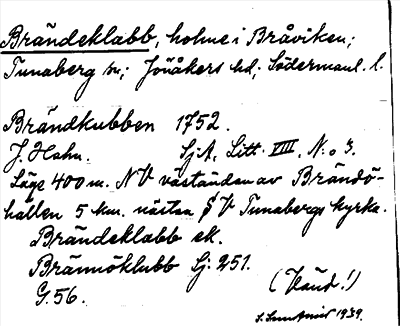 Brändeklabb, holme i Bråviken;
Tunaberg sn; Jönåkers hd; Södermanl. l.
Brändkubben 1752.
J. Hahn. SjA, Litt. VIII, N:o 3.
Läge 400 m. NV väständen av Brändö-
hallen 5 km. nästan SV Tunabergs kyrka.
Brändeklabb ek.
Brännöklubb Sj. 251.
G. 56. (Händ!)
1939.